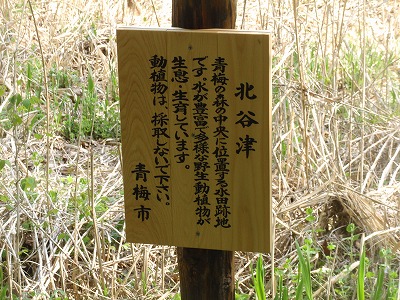 北谷津
青梅の森の中央に位置する水田跡地
です。水が豊富で多様な野生動植物が
生息・生育しています。
動植物は、採取しないで下さい。
青梅市